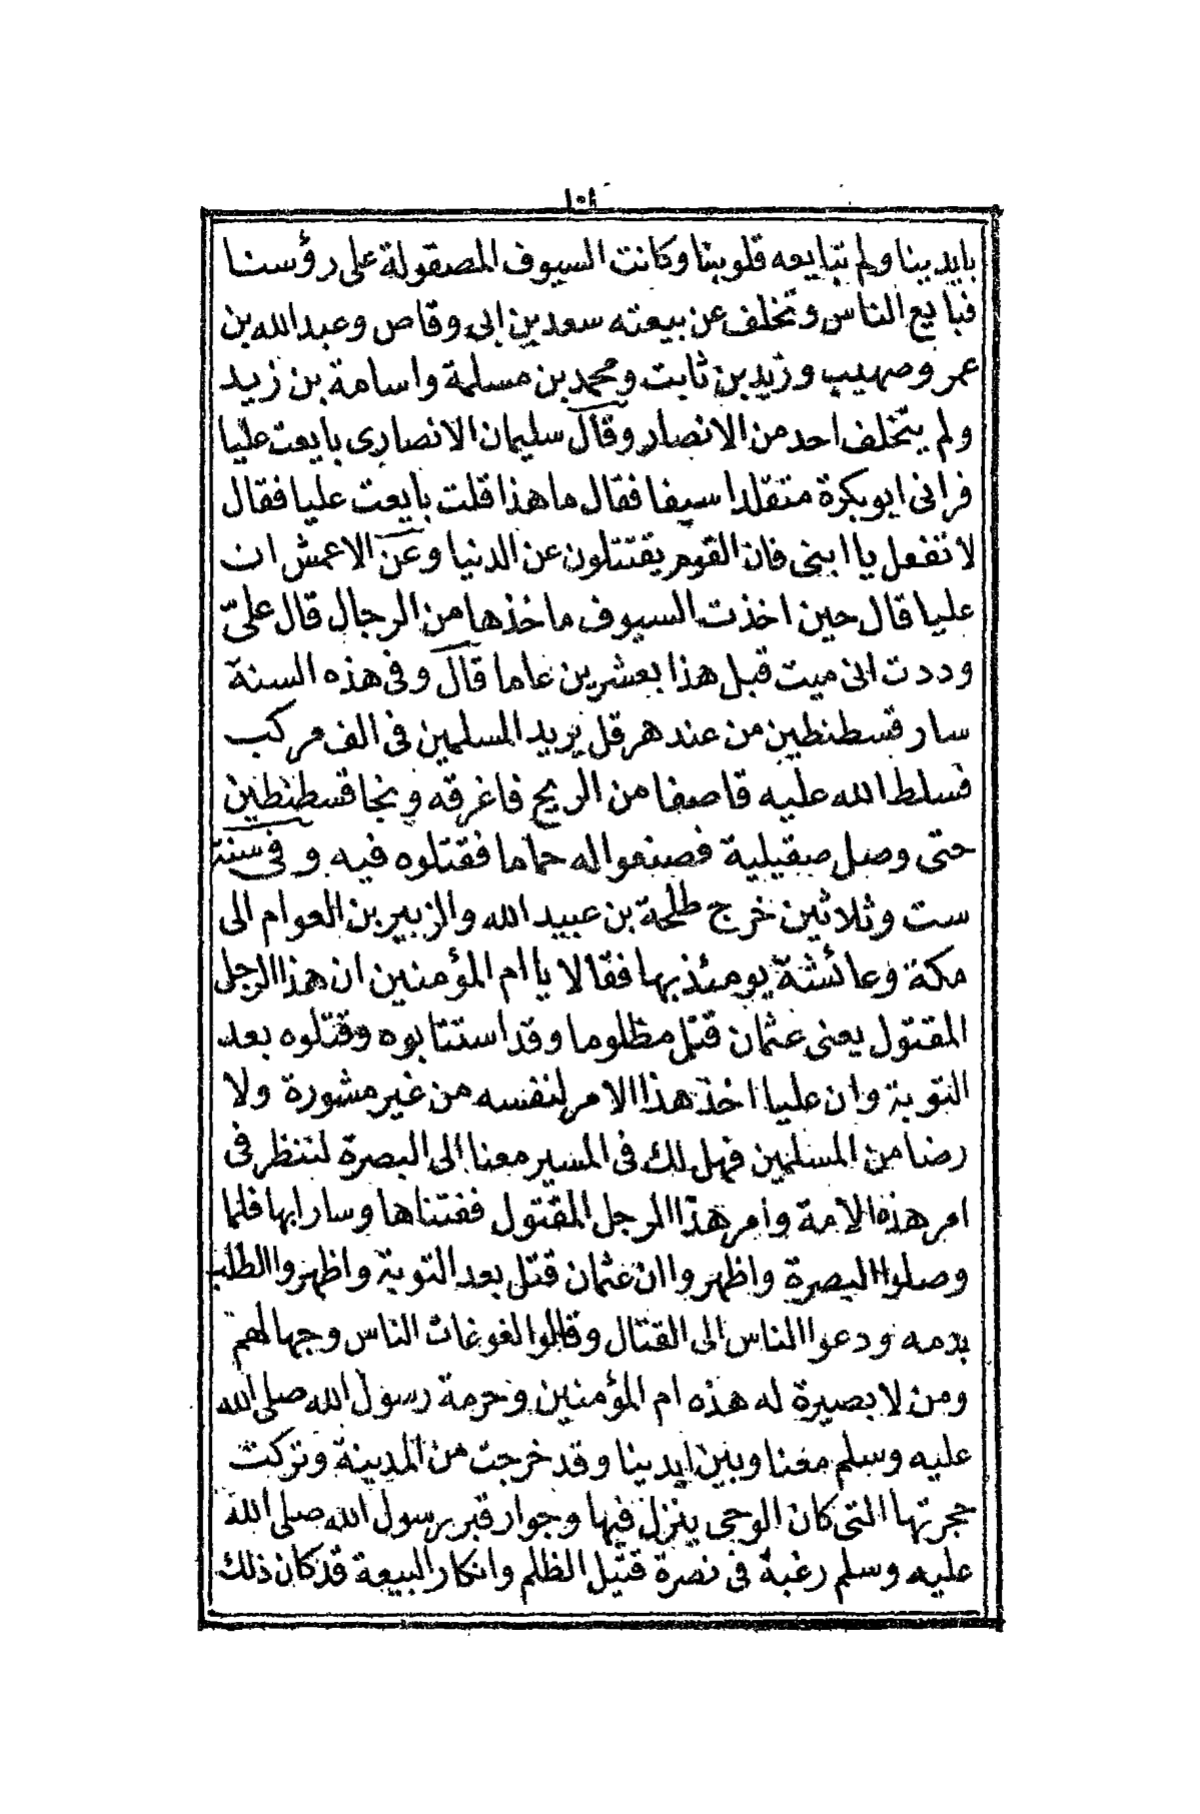 ١٠١
بايدينا ولم تبايعه قلوبنا وكانت السيوف المصقولة على رؤسنا
فبايع الناس وتخلف عن بيعته سعد بن ابى وقاص وعبد الله بن
عمر وصهيب وزيد بن ثابت ومحمد بن مسلمة واسامة بن زيد
ولم يتخلف احد من الانصار وقال سليمان الانصارى بايعت عليا
فرانى ابو بكرة متقلدا سيفا فقال ما هذا قلت بايعت عليا فقال
لا تفعل يا ابنى فان القوم يقتتلون عن الدنيا وعن الاعمش ان
عليا قال حين اخذت السيوف ماخذها من الرجال قال علىّ
وددت انى ميت قبل هذا بعشرين عاما قال وفى هذه السنة
سار قسطنطين من عند هرقل يريد المسلمين فى الف مركب
فسلط الله عليه قاصفا من الريح فاغرقه ونجا قسطنطين
حتى وصل صقيلية فصنعوا له حماما فقتلوه فيه وفى سنة
ست وثلاثين خرج طلحة بن عبيد الله والزبير بن العوام الى
مكة وعائشة يومئذ بها فقالا يا ام المؤمنين ان هذا الرجل
المقتول يعنى عثمان قتل مظلوما وقد استتابوه وقتلوه بعد
التوبة وان عليا اخذ هذا الامر لنفسه من غير مشورة ولا
رضا من المسلمين فهل لك فى المسير معنا الى البصرة لننظر فى
امر هذه الامة وامر هذا الرجل المقتول ففتناها وسارا بها فلما
وصلوا البصرة واظهروا ان عثمان قتل بعد التوبة واظهروا الطلب
بدمه ودعوا الناس الى القتال وقالوا لغوغات الناس وجهالهم
ومن لا بصيرة له هذه ام المؤمنين وحرمة رسول الله صلى الله
عليه وسلم معنا وبين ايدينا وقد خرجت من المدينة وتركت
حجرتها التى كان الوحى ينزل فيها وجوار قبر رسول الله صلى الله
عليه وسلم رغبة فى نصرة قتيل الظلم وانكار البيعة قد كان ذلك